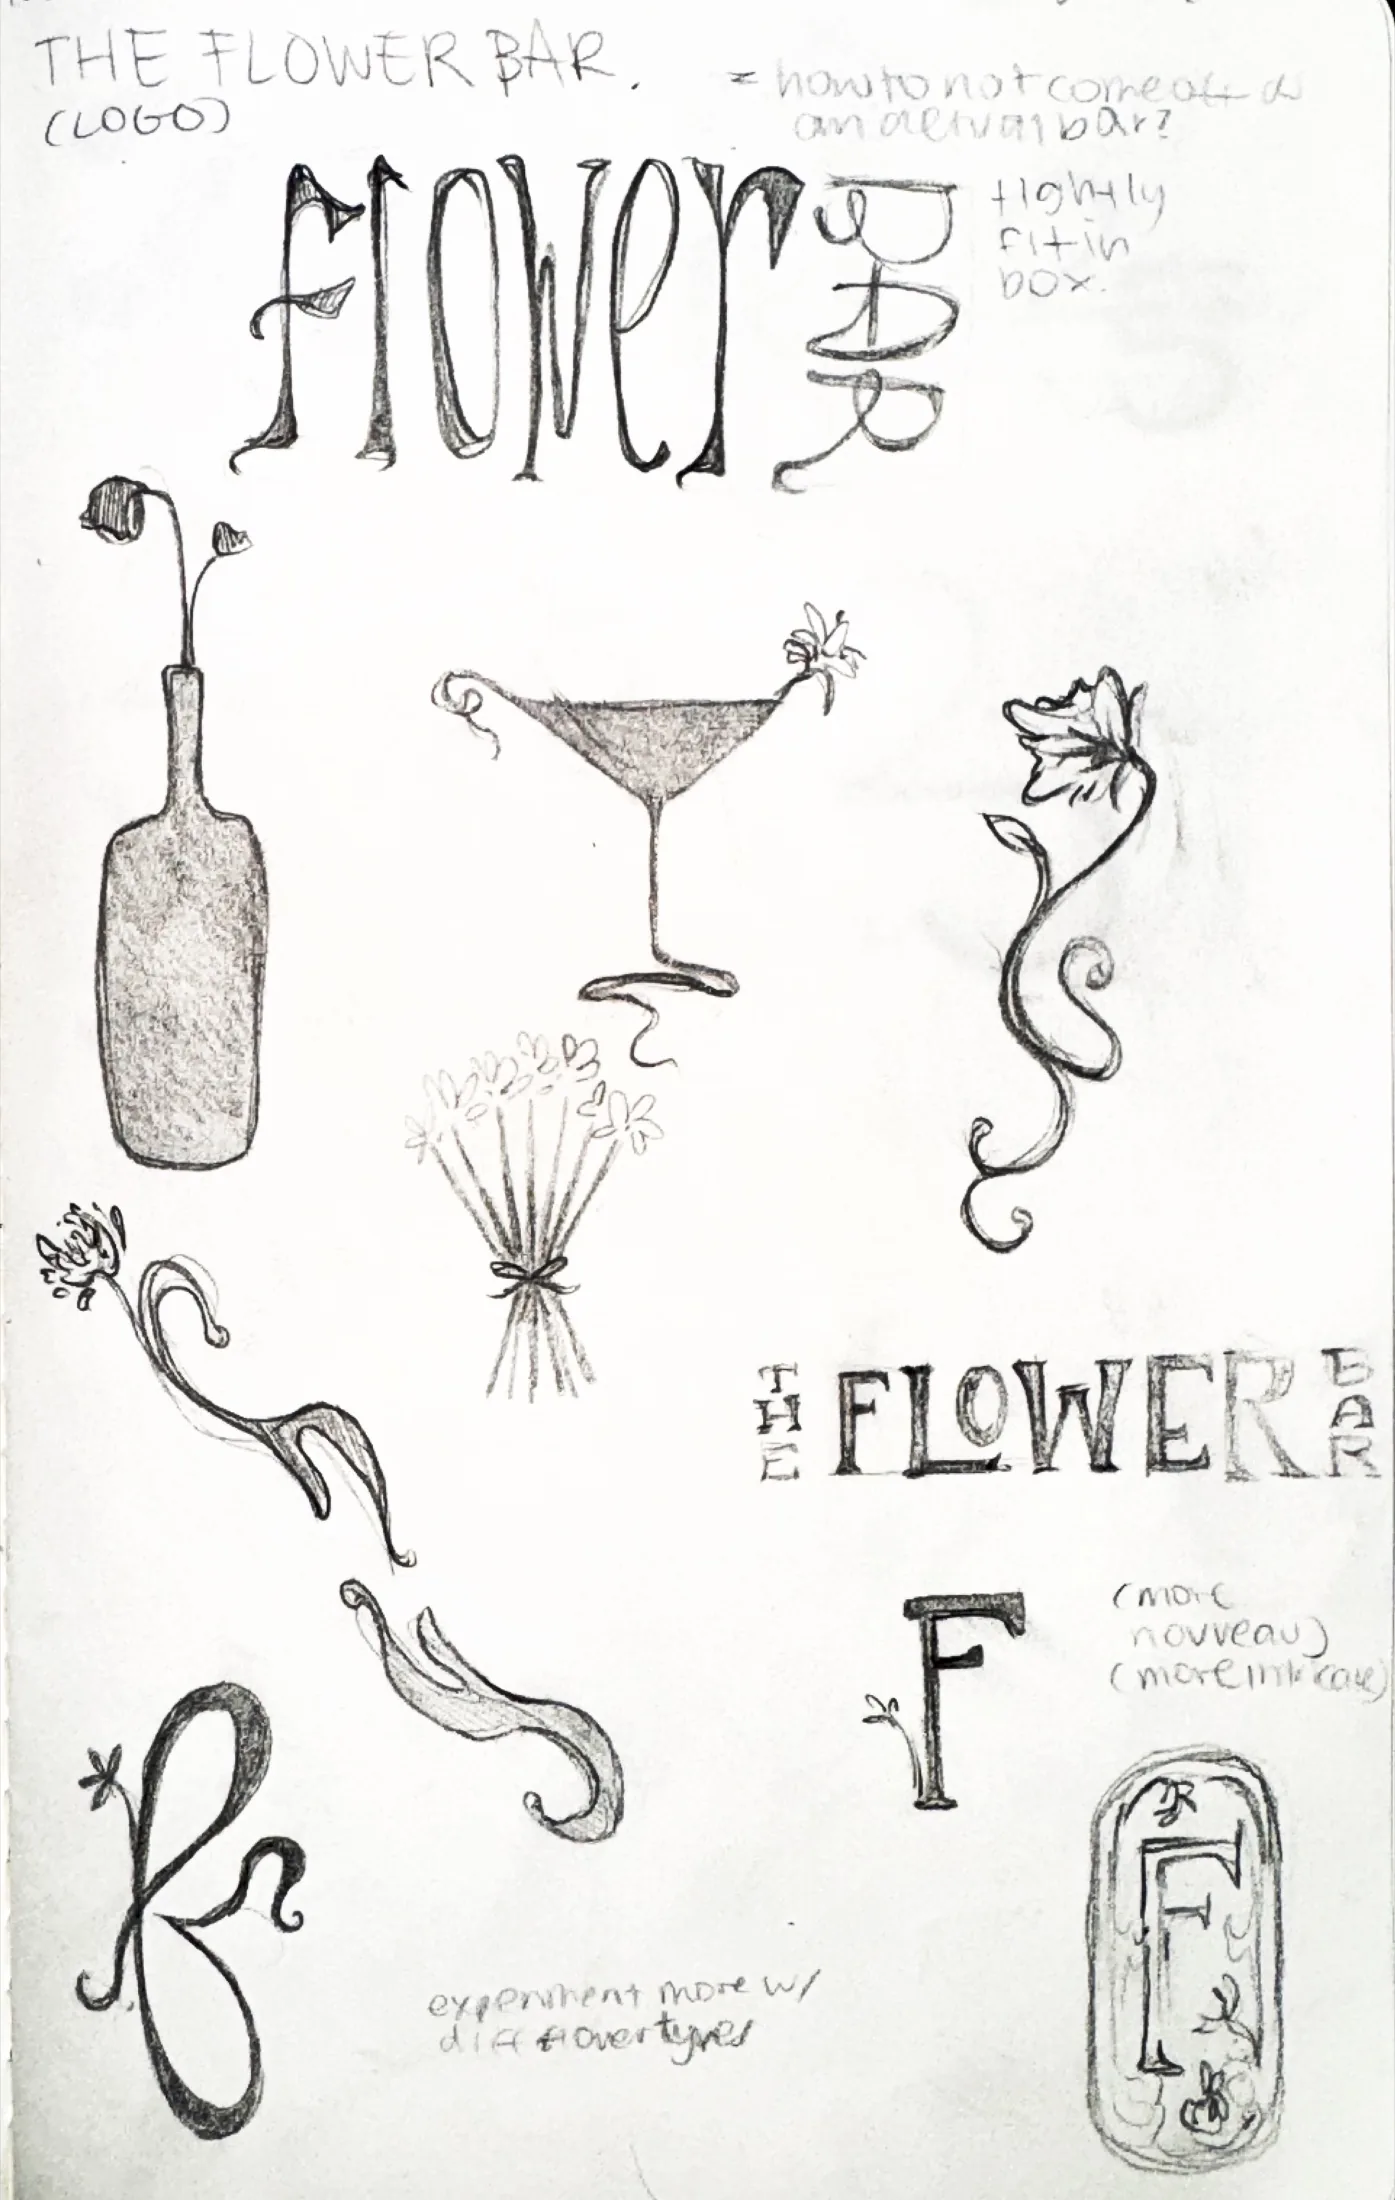 THE FLOWER BAR.
(LOGO)
= how to not come off as
an actual bar?
Flower
BAR
tightly
fit in
box.
THE
FLOWER
BAR
F
(more
nouveau)
(more intricate)
F
experiment more w/
diff flower types